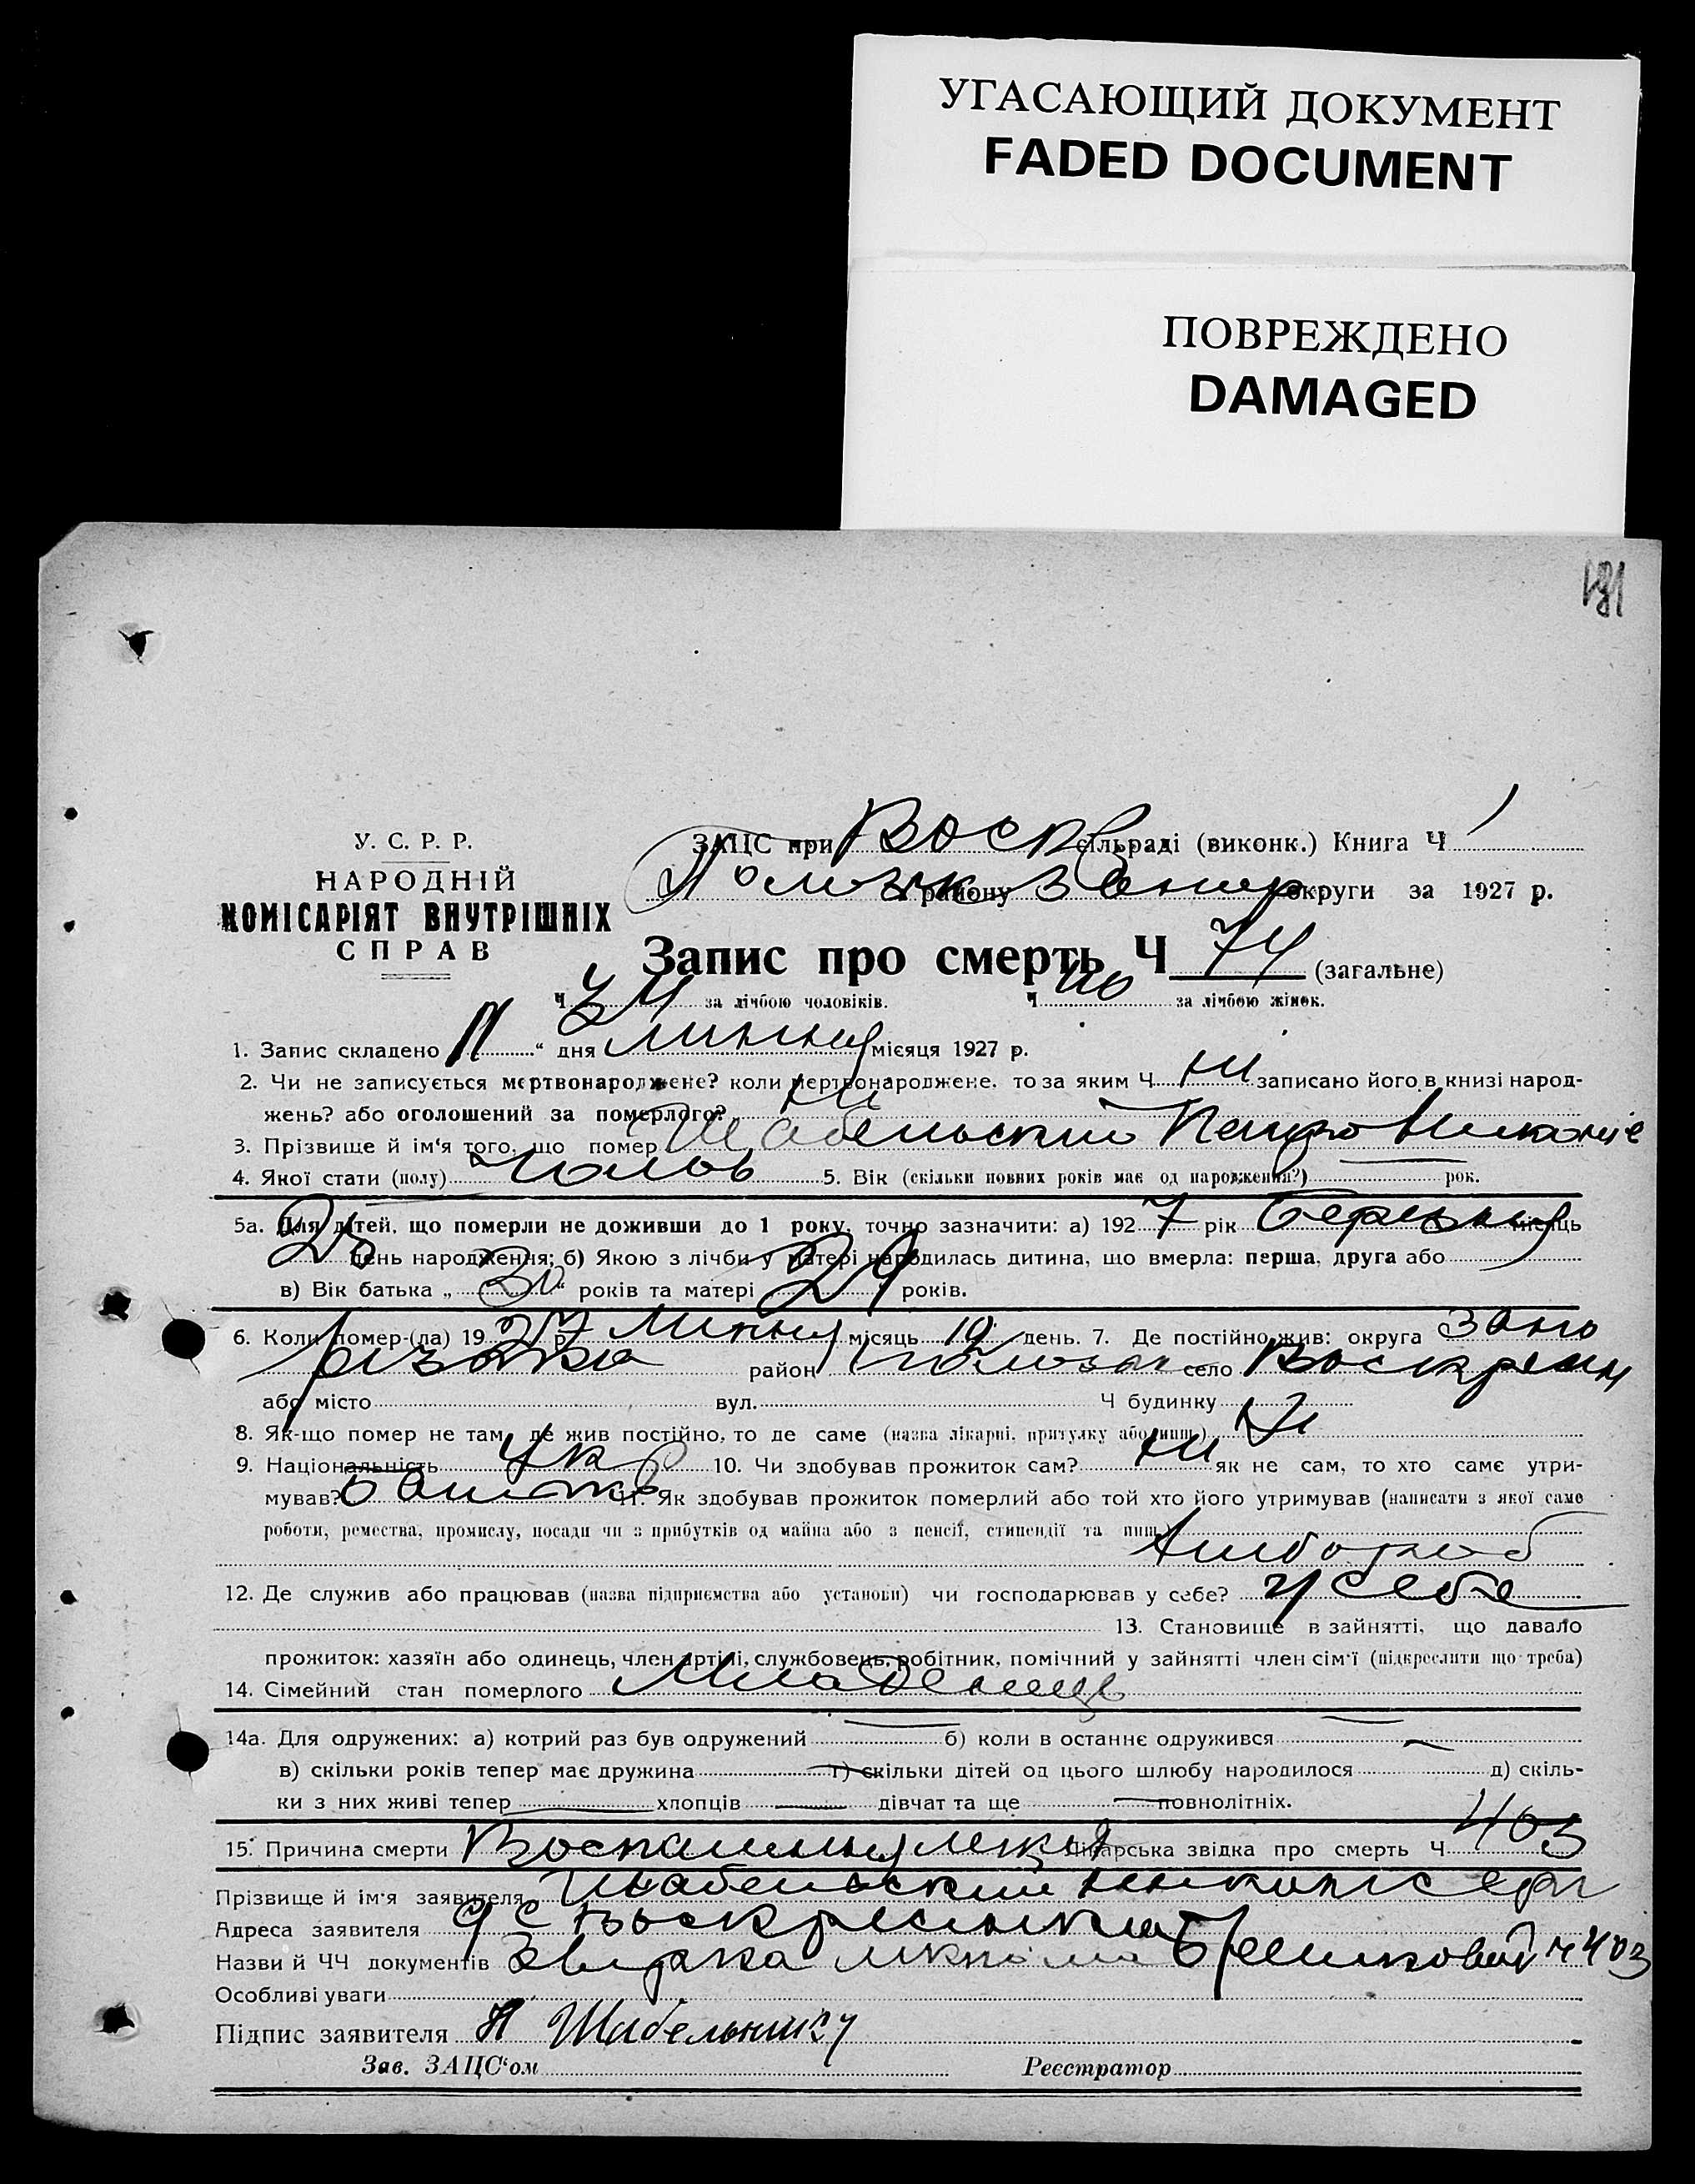 УГАСАЮЩИЙ ДОКУМЕНТ
FADED DOCUMENT
ПОВРЕЖДЕНО
DAMAGED
У. С. Р. Р.
НАРОДНІЙ
КОМІСАРІЯТ ВНУТРІШНІХ
СПРАВ
ЗАЦС при Воскр сільраді (виконк.) Книга Ч 1
району Запор округи за 1927 р.
Запис про смерть Ч 74 (загальне)
Ч 34 за лічбою чоловіків. Ч 40 за лічбою жінок.
1. Запис складено 11 “ дня липня місяця 1927 р.
2. Чи не записується мертвонароджене? коли мертвонароджене, то за яким Ч ні записано його в книзі народ-
жень? або оголошений за померлого? ні
3. Прізвище й ім'я того, що помер Шабельский Петро
4. Якої статі (полу) чолов 5. Вік (скільки повних років має од народження?) рок.
5а. Для дітей, що померли не доживши до 1 року, точно зазначити: а) 1927 рік березня місяць
25 день народження; б) Якою з лічби у матері народилась дитина, що вмерла: перша, друга або
в) Вік батька „ 30 “ років та матері 29 років.
6. Коли помер-(ла) 1927 р. липня місяць 10 день. 7. Де постійно жив: округа Запо
різька район село Воскресен
або місто вул. Ч будинку
8. Як-що помер не там, де жив постійно, то де саме (назва лікарні, притулку або инш.) ні
9. Національність Укр 10. Чи здобував прожиток сам? ні як не сам, то хто саме утри-
мував? батько 11. Як здобував прожиток померлий або той хто його утримував (написати з якої саме
роботи, ремества, промислу, посади чи з прибутків од майна або з пенсії, стипендії та инш.)
Хлібороб
12. Де служив або працював (назва підприємства або установи) чи господарював у себе? у себе
13. Становище в зайнятті, що давало
прожиток: хазяїн або одинець, член артілі, службовець, робітник, помічний у зайнятті член сім'ї (підкреслити що треба)
14. Сімейний стан померлого Младенець
14а. Для одружених: а) котрий раз був одружений б) коли в останнє одружився
в) скільки років тепер має дружина г) скільки дітей од цього шлюбу народилося д) скіль-
ки з них живі тепер хлопців дівчат та ще повнолітніх.
15. Причина смерти Воспалення легк Лікарська звідка про смерть Ч 403
Прізвище й ім'я заявителя Шабельский
Адреса заявителя с Воскресенка
Назви й ЧЧ документів ч 403
Особливі уваги
Підпис заявителя Н Шабельский
Зав. ЗАЦС'ом Реєстратор